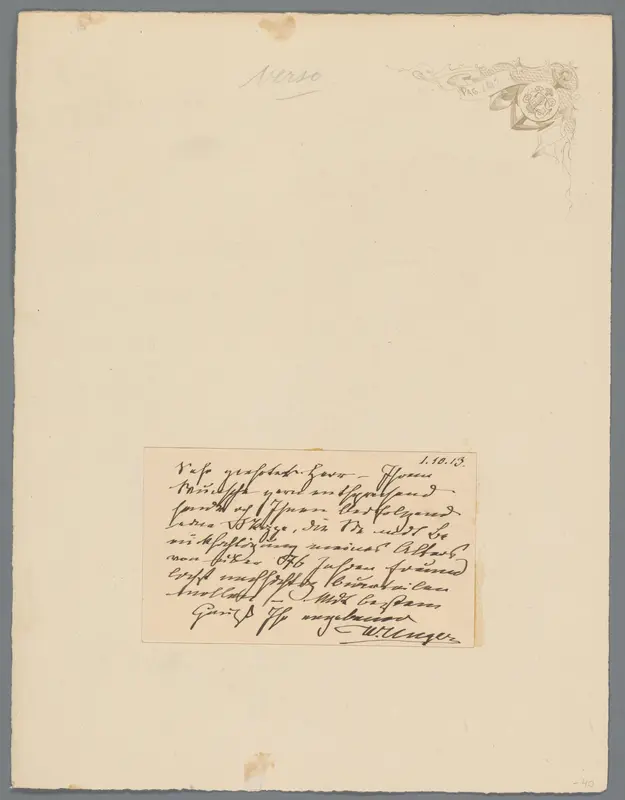 Verso
PAG.
1.10.13.
Sehr geehrter Herr – Ihrem
Wunsche gern entsprechend
sende ich Ihnen beifolgend
eine Skizze, die Sie mit Be
rücksichtigung meines Alters
von über 76 Jahren freund
lichst nachsichtig beurteilen
wollen – Mit bestem
Gruß Ihr ergebener
W. Unger
-40